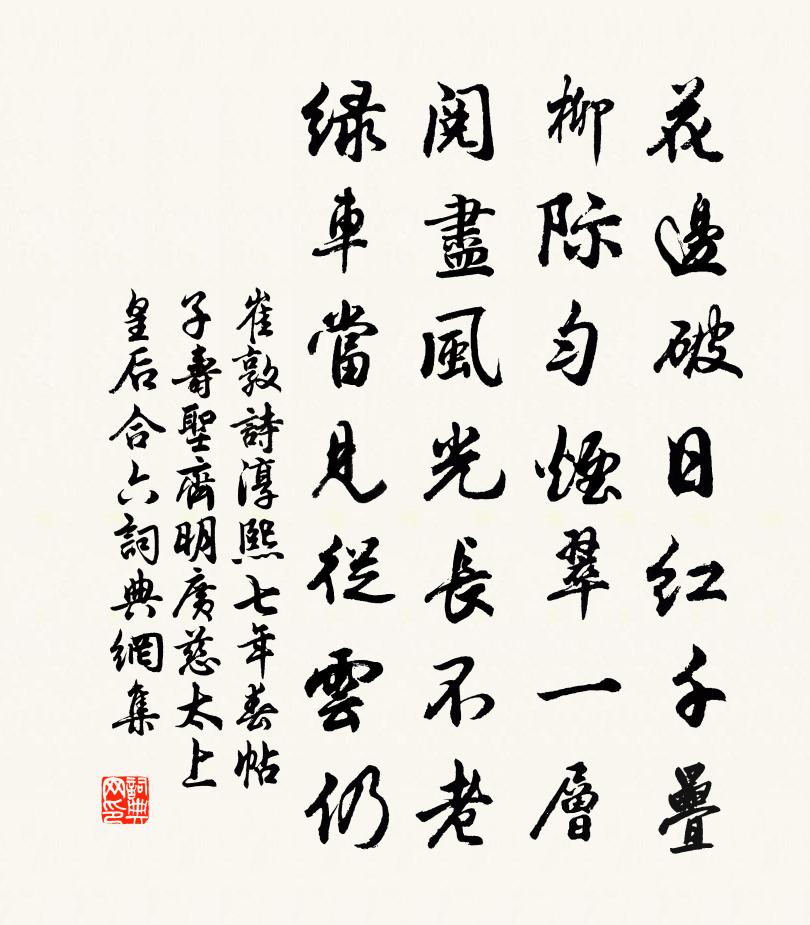 花邊破日紅千疊
柳际勻煙翠一層
閱盡風光長不老
緑車當見從雲仍
崔敦詩淳熙七年春帖
子壽聖齊明廣慈太上
皇后合六詞典網集
詞典
网印